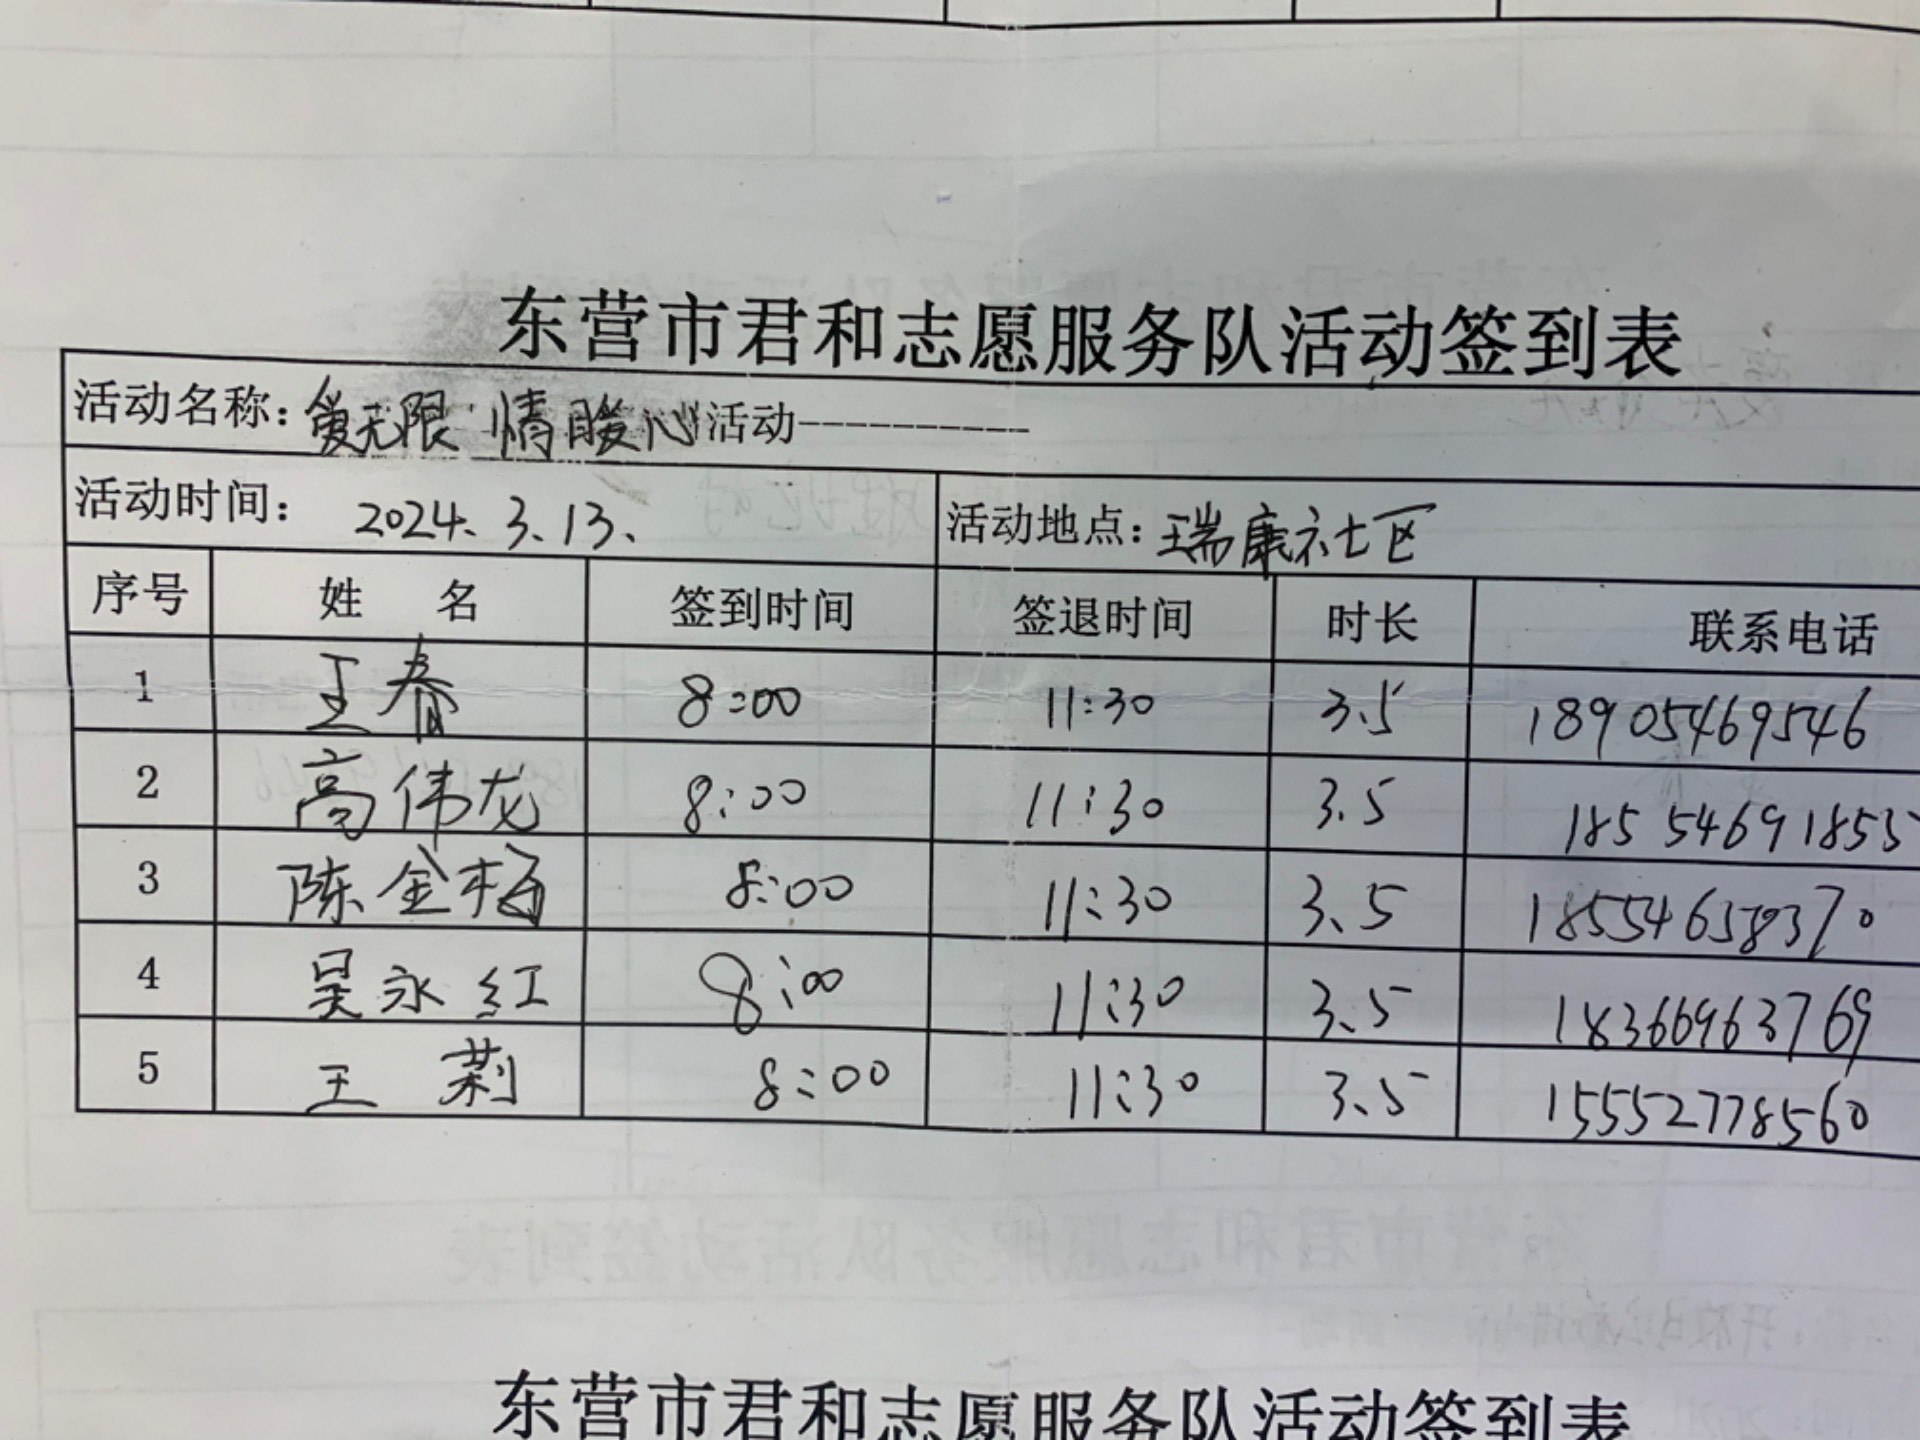 东营市君和志愿服务队活动签到表
活动名称：爱无限 情暖心 活动----------
活动时间： 2024.3.13. 活动地点：瑞康社区
序号 姓 名 签到时间 签退时间 时长 联系电话
1 王春 8:00 11:30 3.5 18905469546
2 高伟龙 8:00 11:30 3.5 18554691855
3 陈金梅 8:00 11:30 3.5 18554658370
4 吴永红 8:00 11:30 3.5 18366963769
5 王 莉 8:00 11:30 3.5 15552778560
东营市君和志愿服务队活动签到表